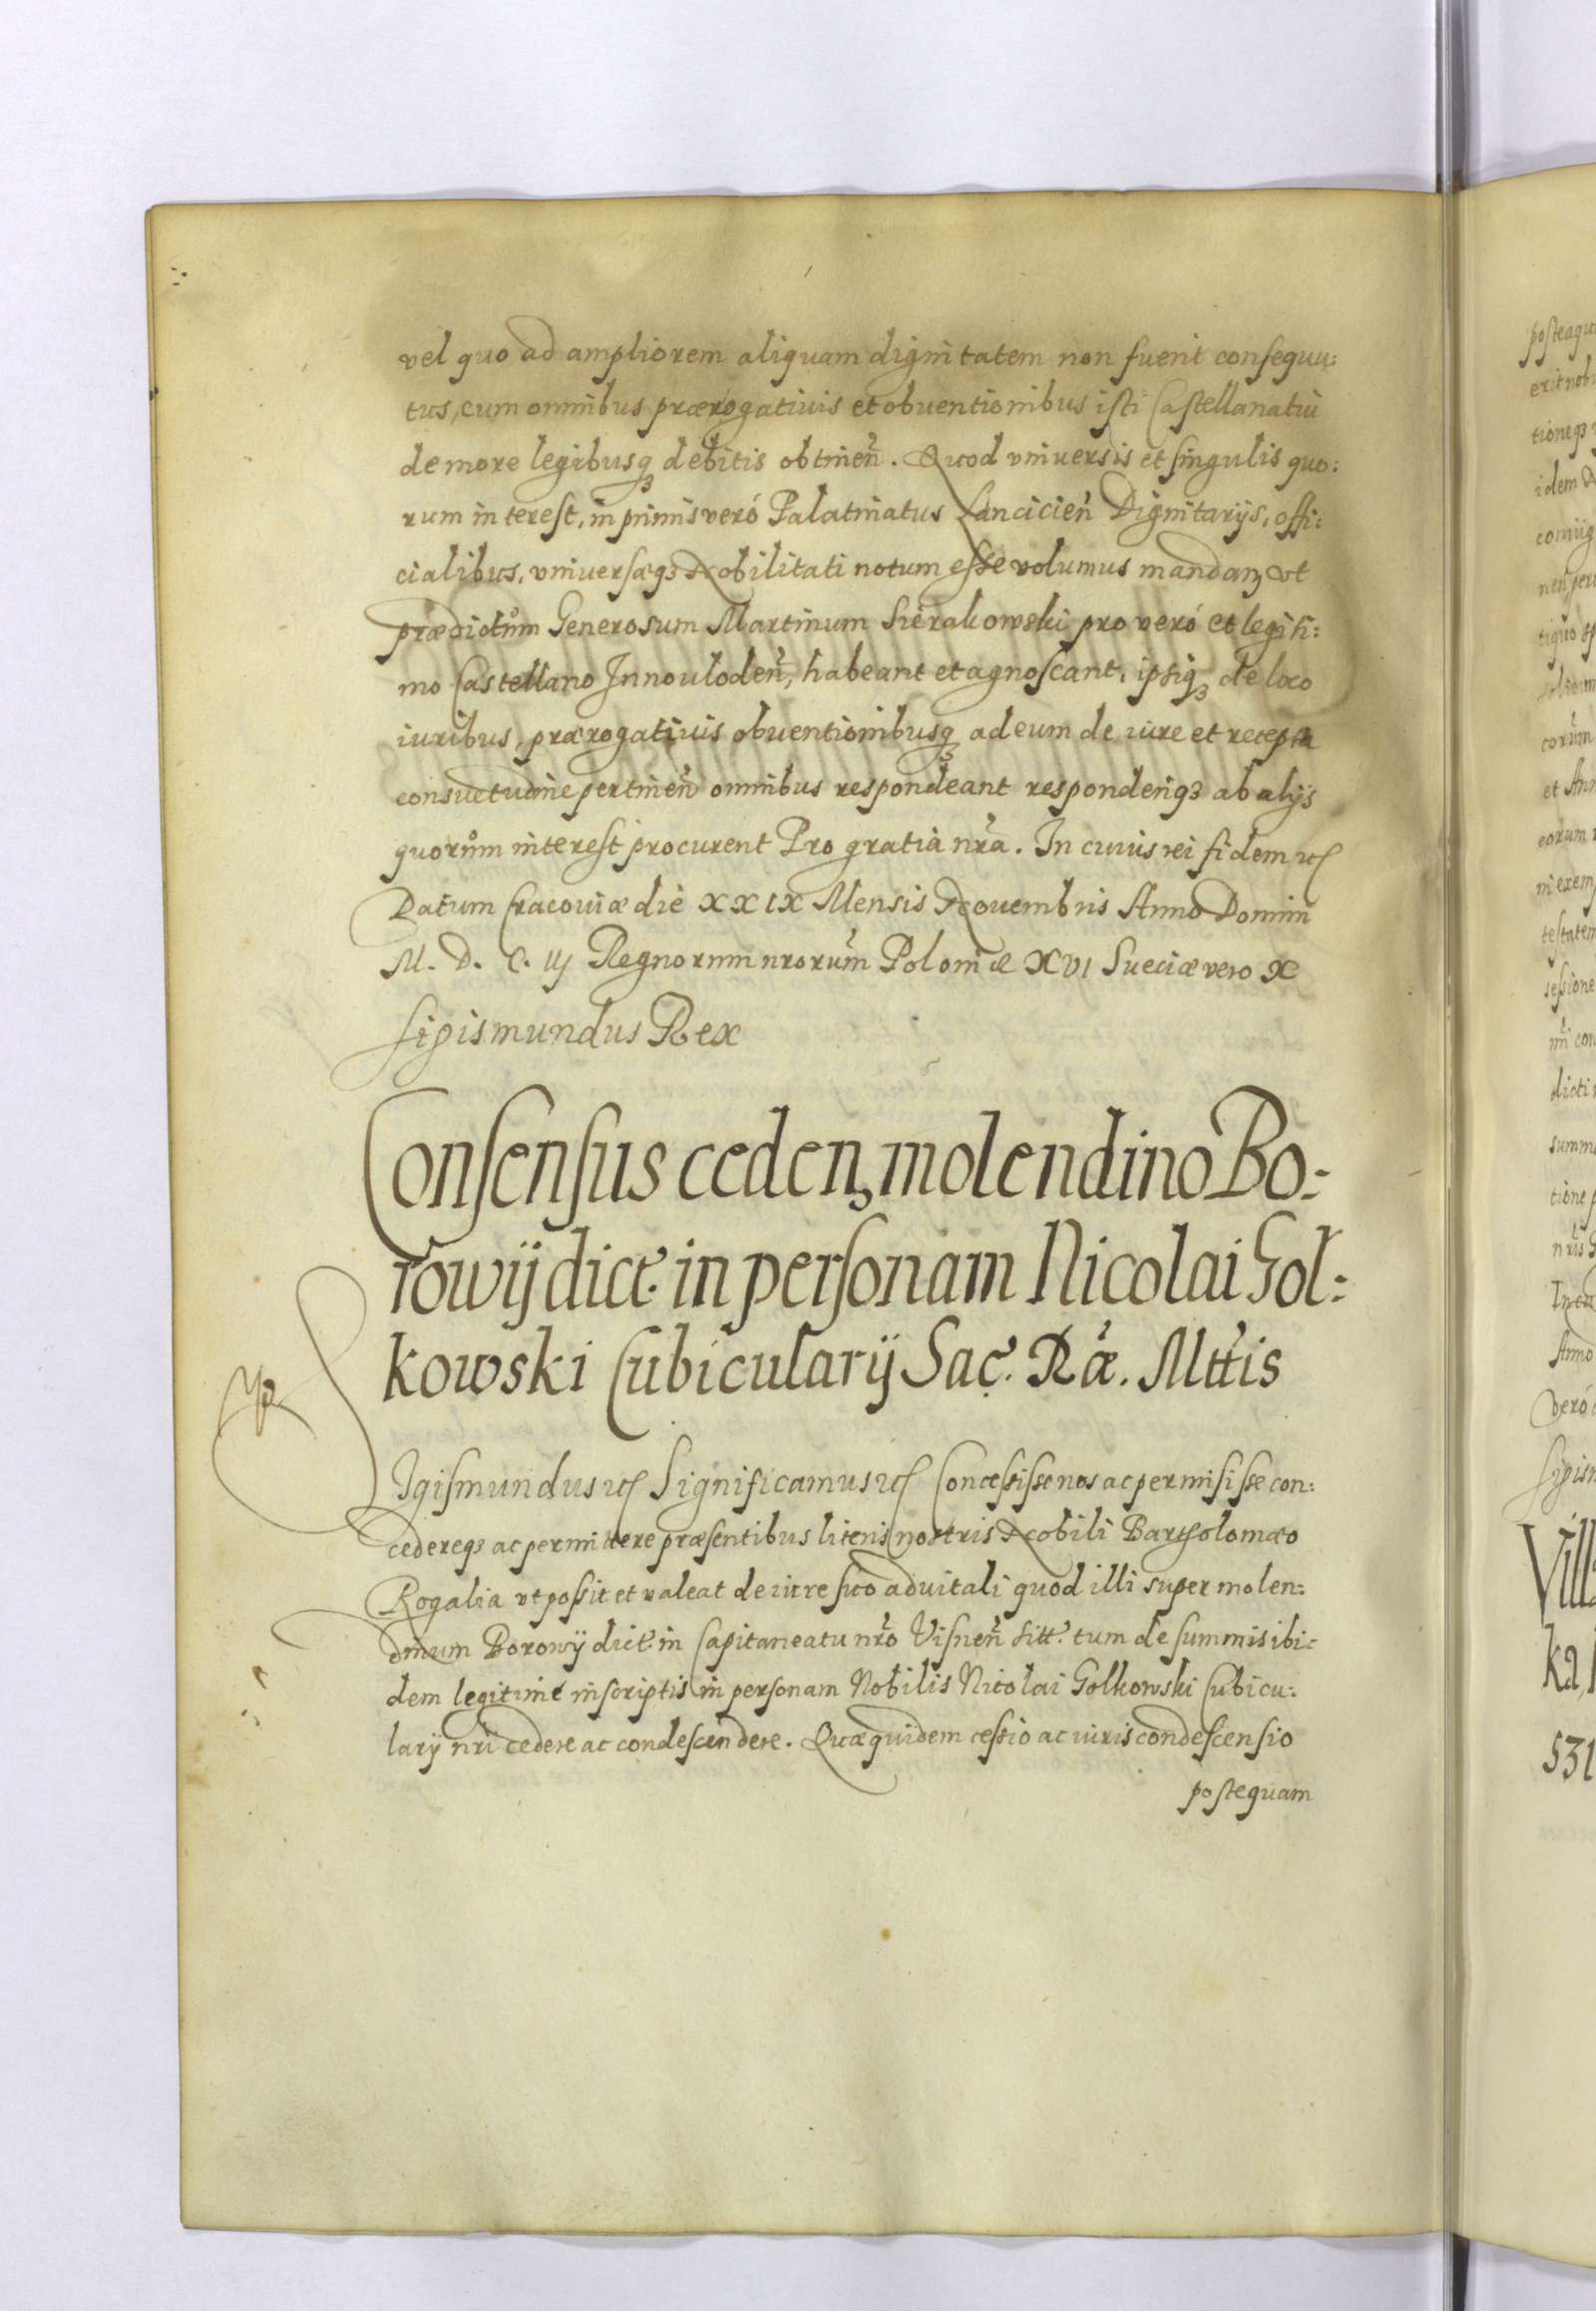 vel quo ad ampliorem aliquam dignitatem non fuerit consequu:
tus, cum omnibus prærogativis et obventionibus isti Castellanatui
de more legibusq3 debitis obtinen̄. Quod vniuersis et singulis quo:
rum interest, in primis veró Palatinatus Lancicien̄ Dignitarijs, offi:
cialibus, vniuersæq3 Nobilitati notum esse volumus mandan3 vt
prædictům Generosum Martinum Sierakowski pro veró et legiti:
mo Castellano Innouloden̄, habeant et agnoscant, ipsiq3 de loco
iuribus, prærogatiuis obuentionibusq3 ad eum de iure et recepta
consuetudine pertinen̄ omnibus respondeant responderiq3 ab alijs
quorům interest procurent Pro gratia nr̄a. In cuius rei fidem etc
Datum Cracouiæ die XXIX Mensis Nouembris Anno Domini
M. D. C. iij Regnorum nrorum̄ Poloniæ XVI Sueciæ vero X
Sigismundus Rex
Consensus ceden3 molendino Bo:
rowÿ dict. in personam Nicolai Gol:
kowski Cubicularÿ Sac. Ræ. Mttis
Sigismundus etc Significamus etc Concessisse nos ac permisisse con:
cedereq3 ac permittere præsentibus literis nostris Nobili Bartholomæo
Rogalia vt possit et valeat de iure suo aduitali quod illi super molen:
dinum Borowÿ dict. in Capitaneatu nr̄o Visnen̄ sitt. tum de summis ibi:
dem legitimé inscriptis in personam Nobilis Nicolai Golkowski Cubicu:
larÿ nr̄i cedere ac condescendere. Quæ quidem cessio ac iuris condescensio
postequam